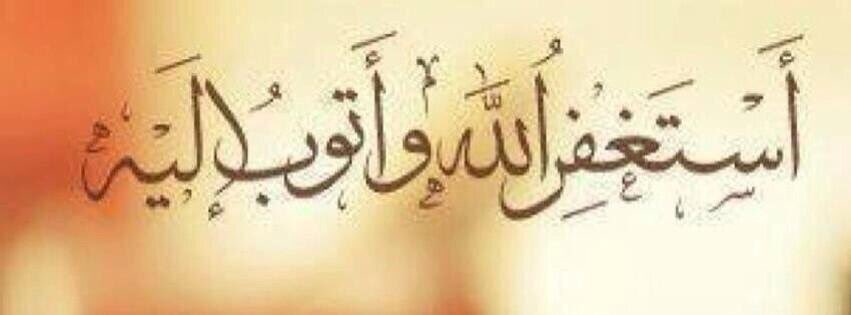 أَسْتَغْفِرُ اللَّه وَأَتُوبُ إِلَيْهِ